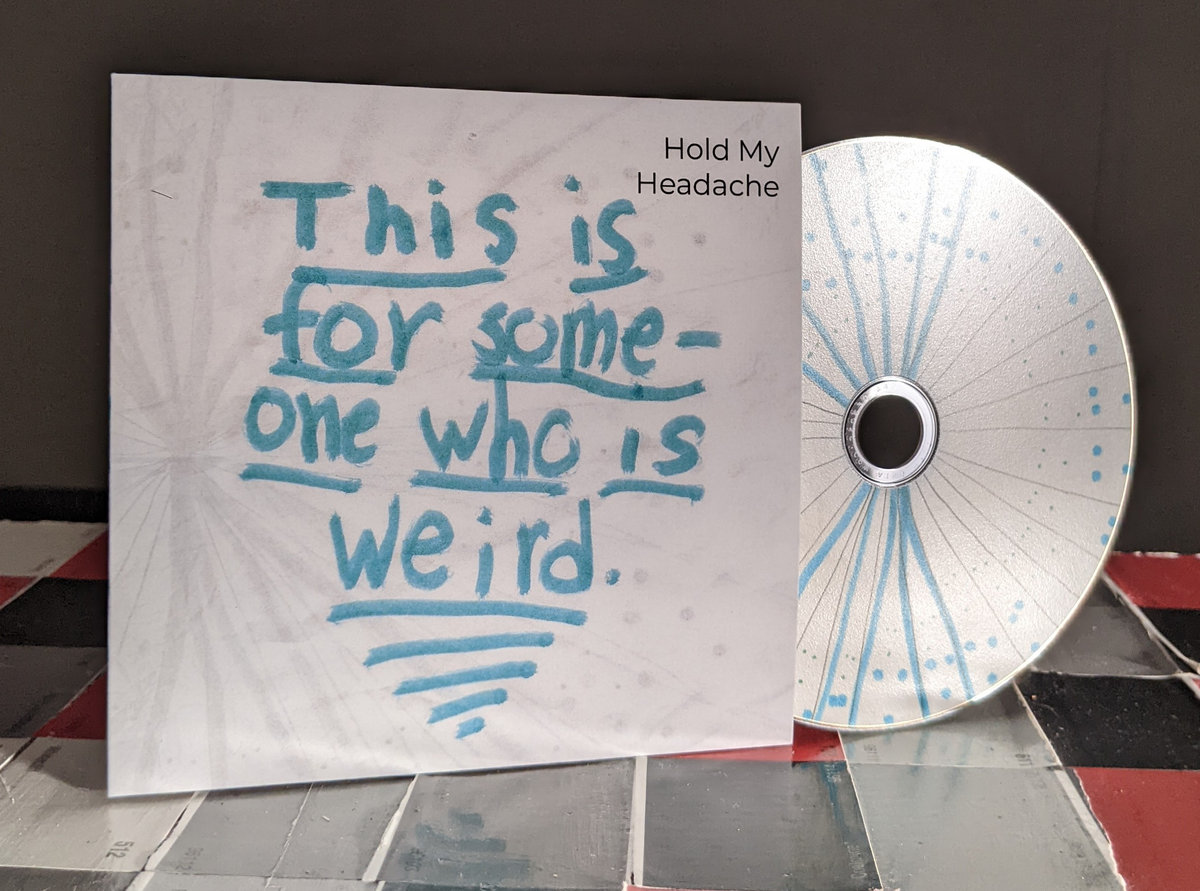 Hold My
Headache
This is
for some-
one who is
weird.
512